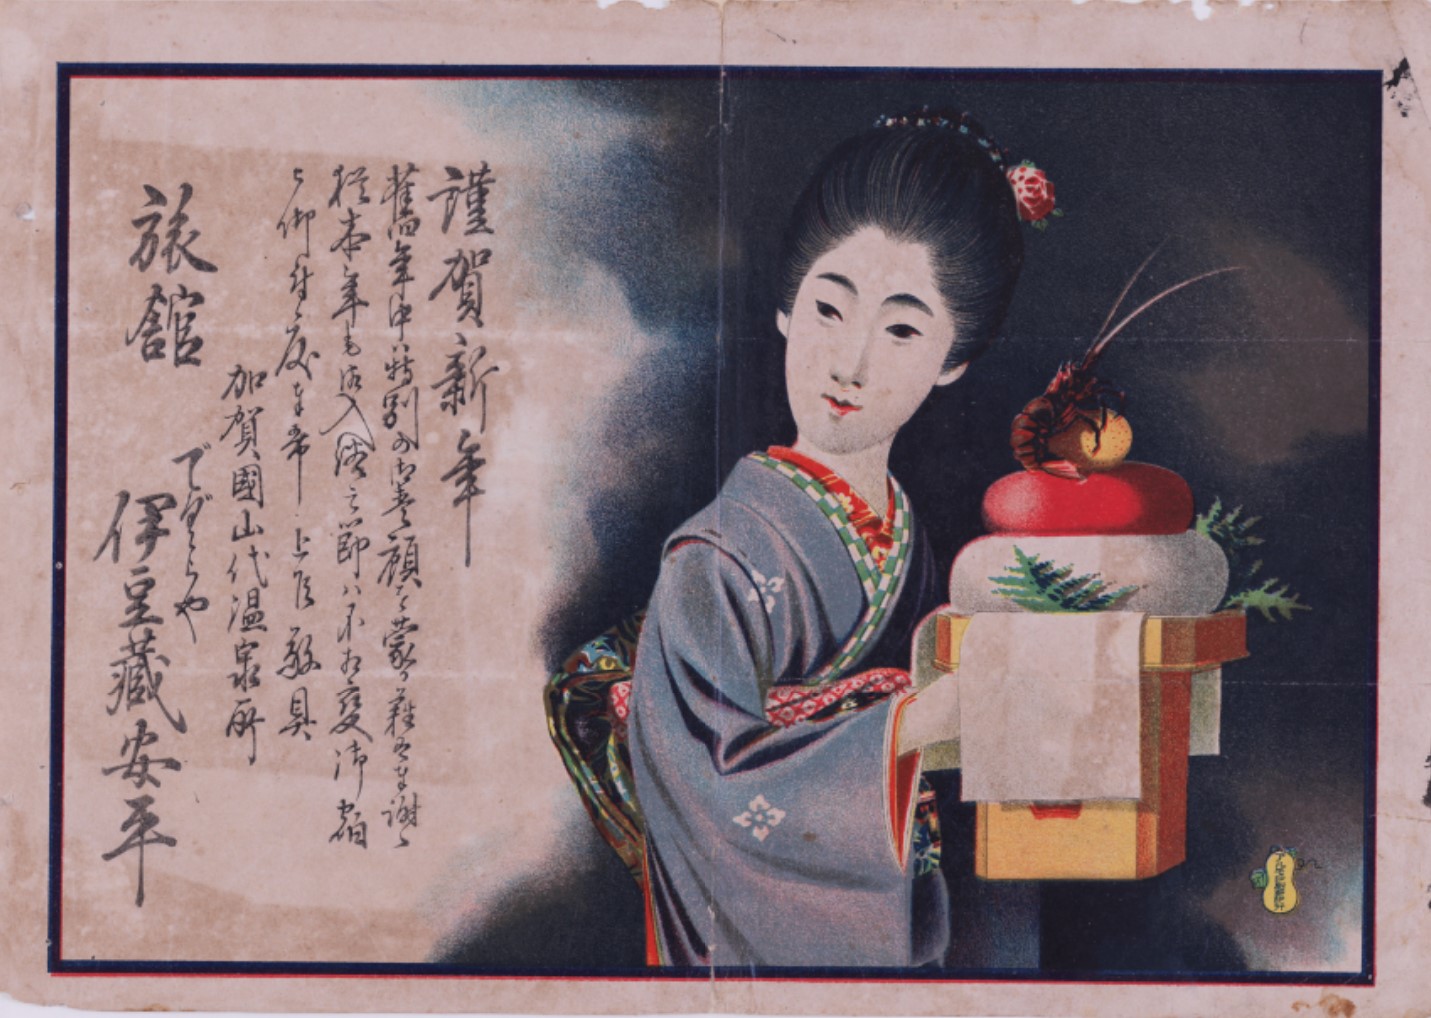 謹賀新年
舊年中ハ特別の御愛顧を蒙り難有奉謝候
猶本年も御入浴之節ハ不相変御宿
被仰付度奉希上候 敬具
加賀國山代温泉所
でぐらや
旅館 伊豆藏安平